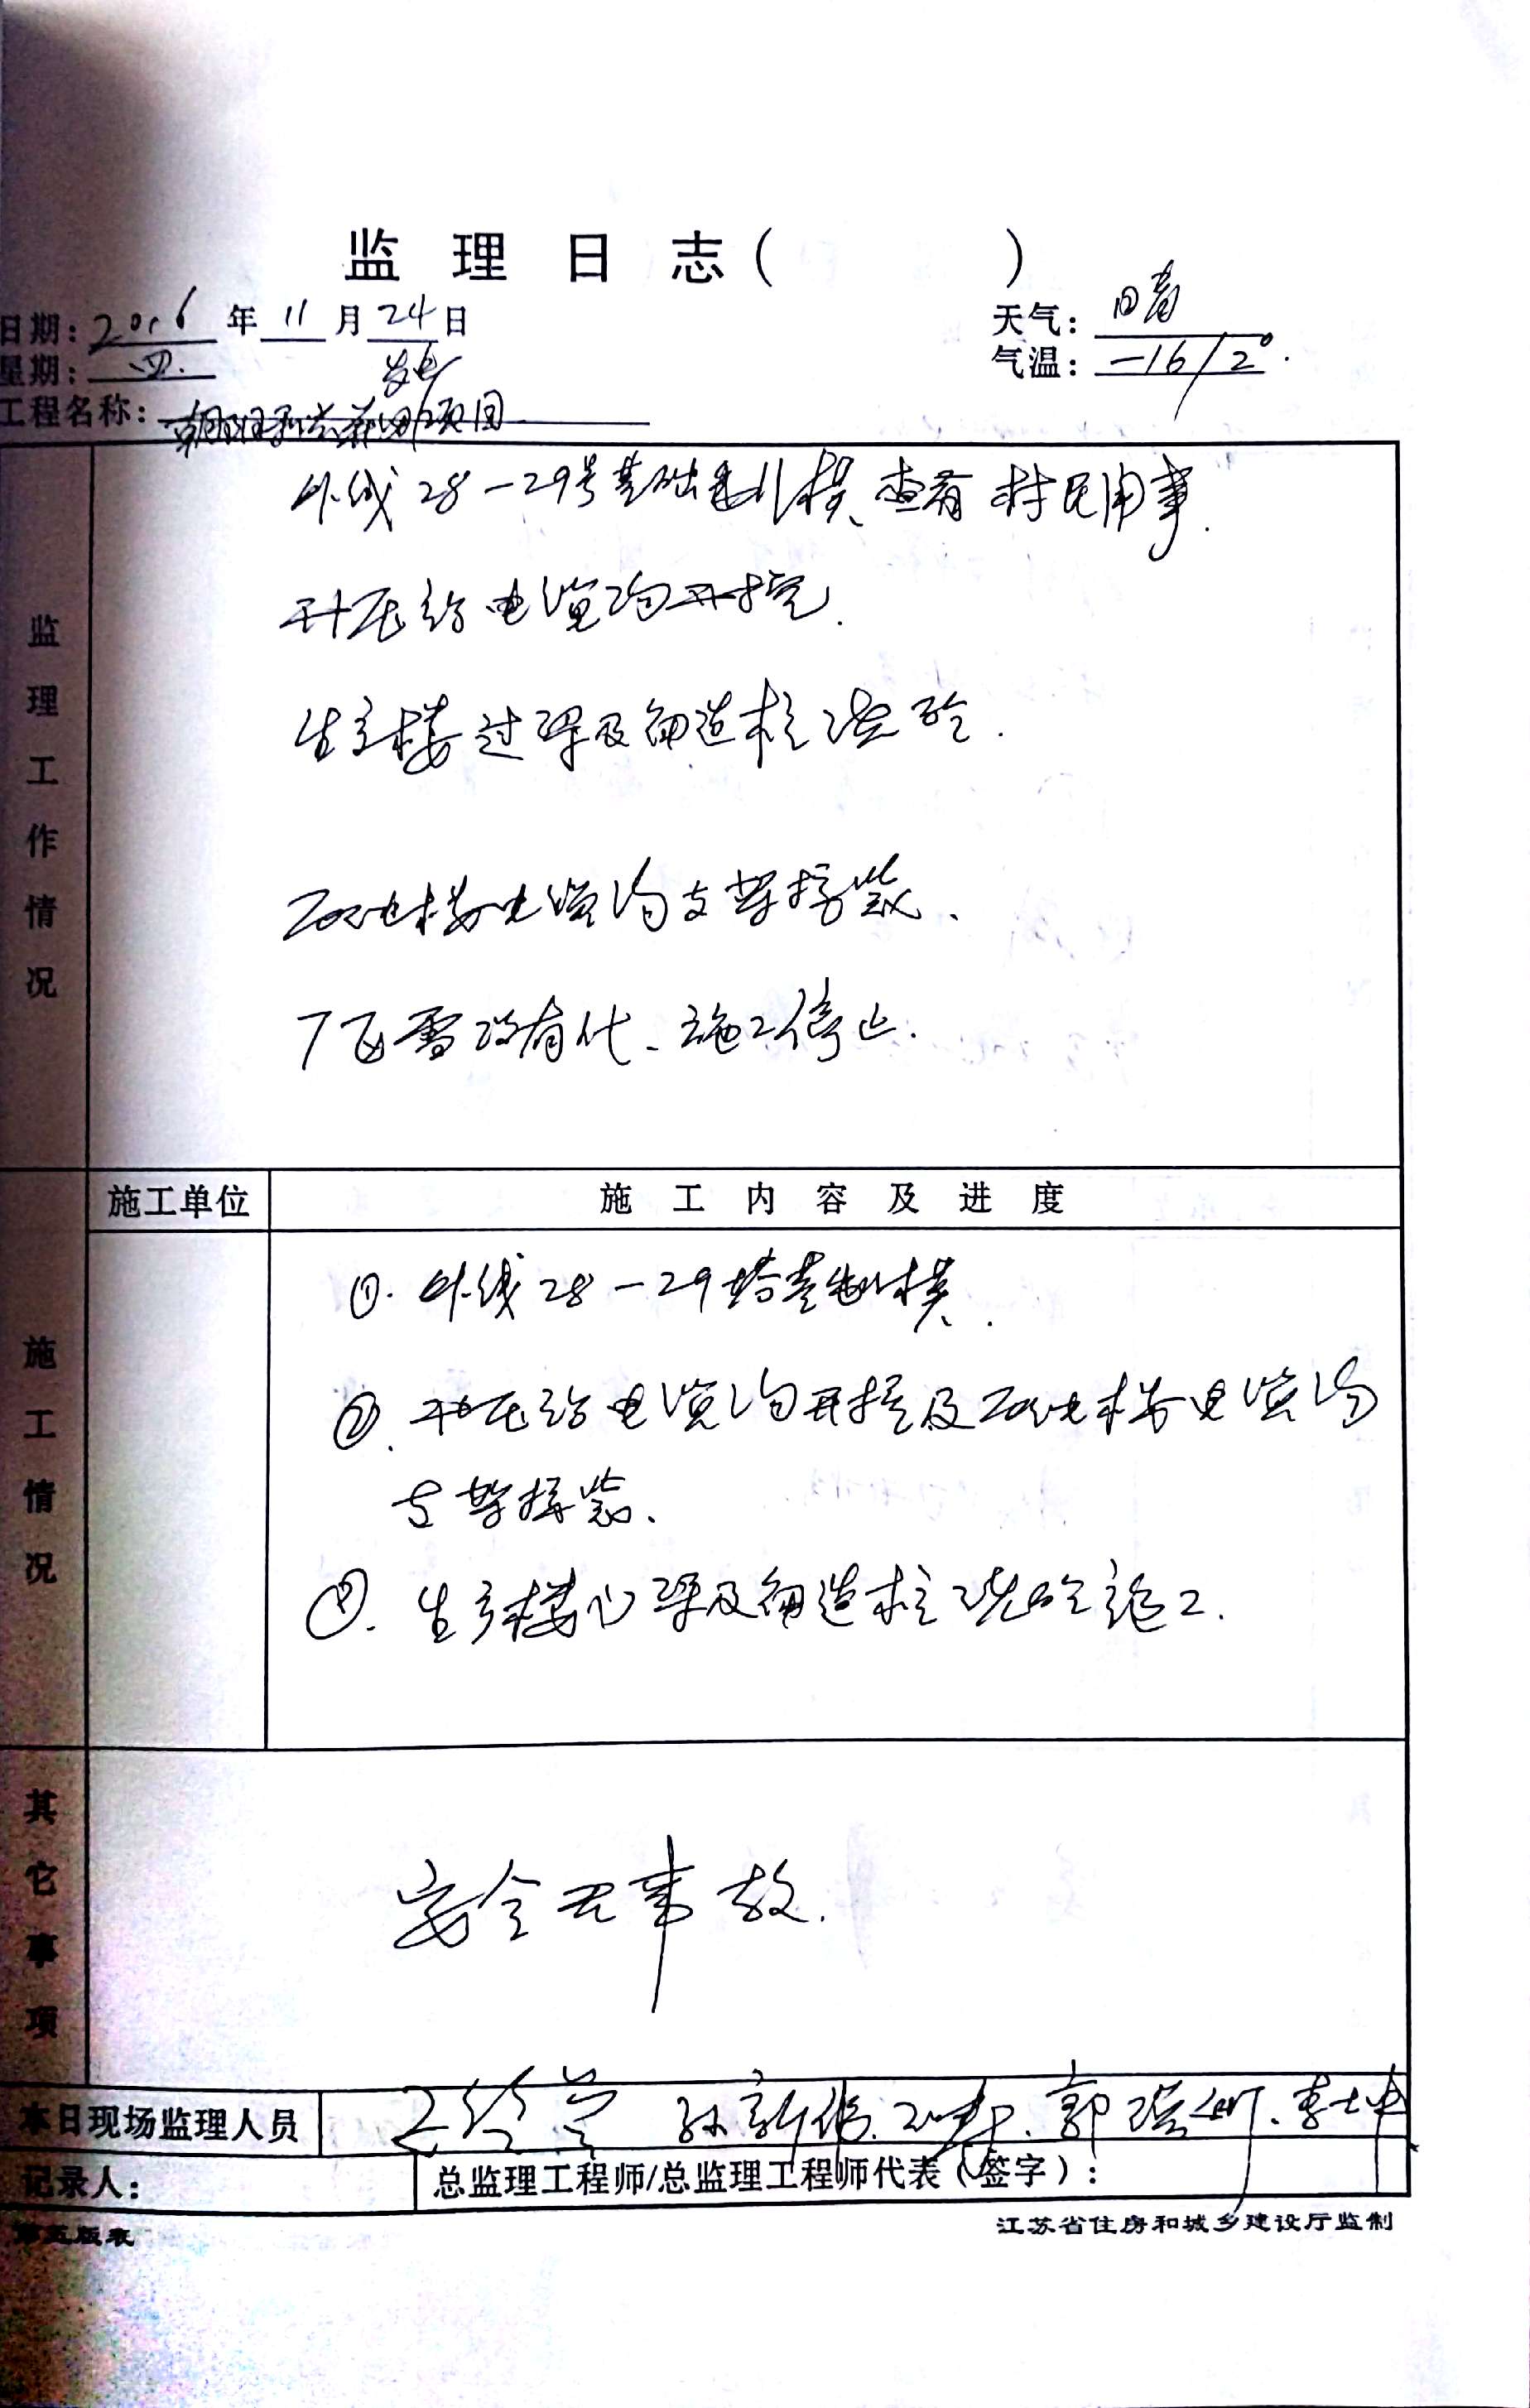 监理日志（　　　）
日期：2016年11月24日
天气：晴
星期：四.
气温：-16/2°.
发电
工程名称：朝阳 项目
监理工作情况
外线28-29号基础 模、查看村民用事.
升压站电缆沟开挖.
生产楼过梁及构造柱浇砼.
配电楼电缆沟支架焊装、
下 雪没有化、施工停止.
施工单位
施工内容及进度
施工情况
①. 外线28-29塔基 模.
②. 升压站电缆沟开挖及配电楼电缆沟
支架焊装、
③. 生产楼 梁及构造柱浇砼施工.
其它事项
安全无事故.
本日现场监理人员
孙新 郭 李士坤
记录人：
总监理工程师/总监理工程师代表（签字）：
第五版表
江苏省住房和城乡建设厅监制